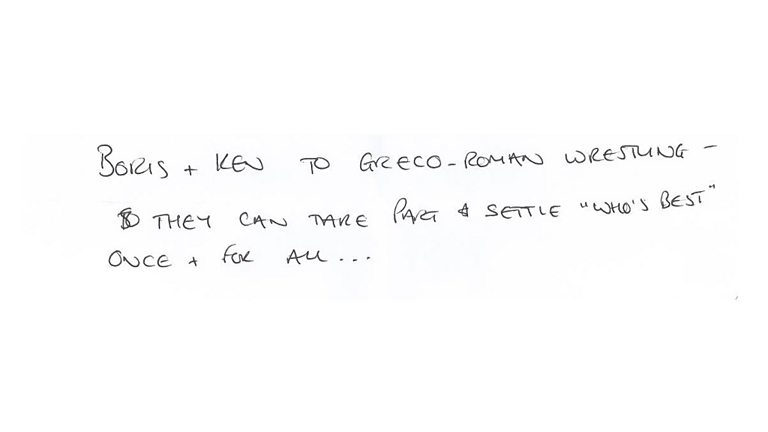 BORIS + KEN TO GRECO-ROMAN WRESTLING -
SO THEY CAN TAKE PART & SETTLE "WHO'S BEST"
ONCE + FOR ALL...